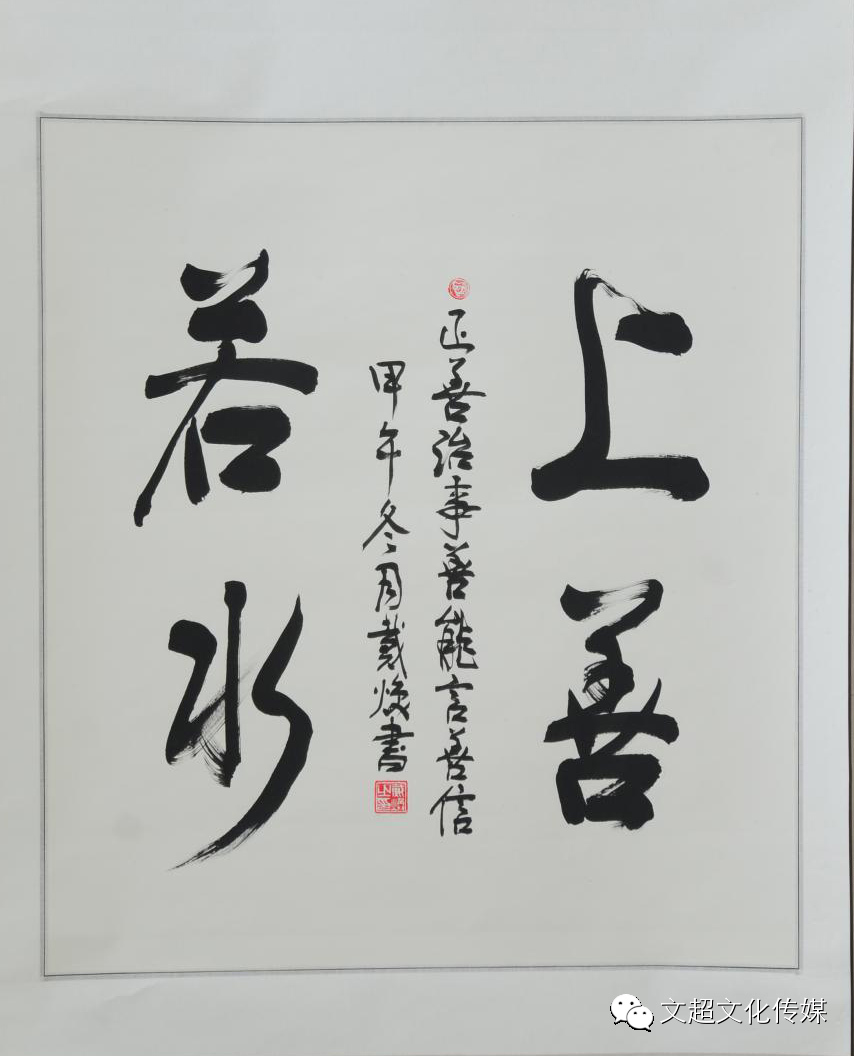 上善
若水
正善治事善能言善信
甲午冬月戴焕書
文超文化传媒